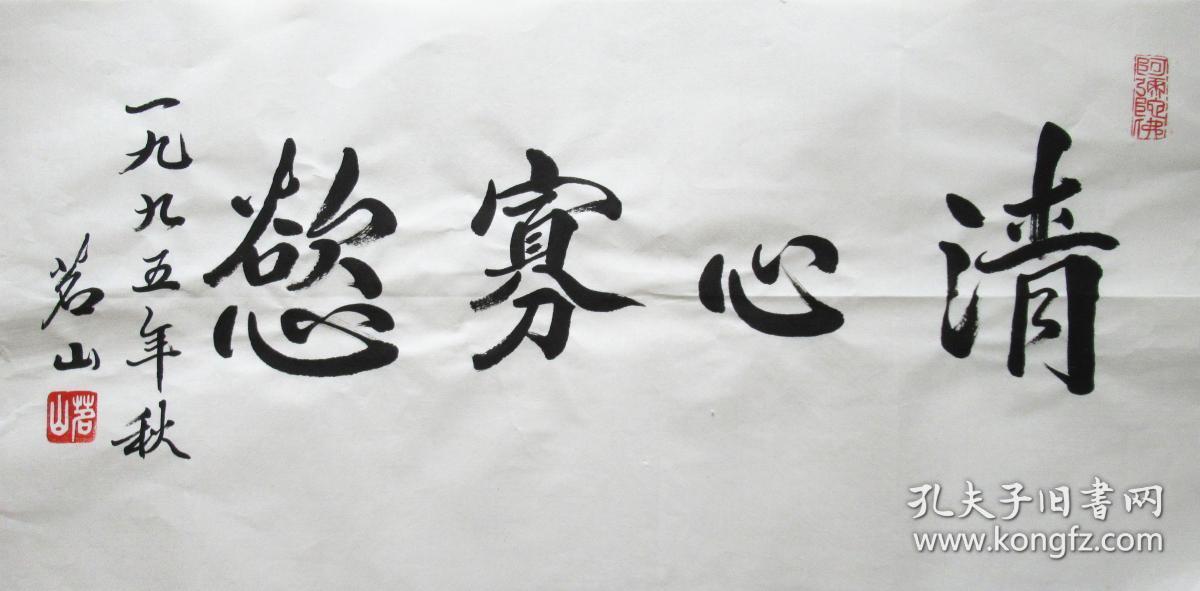 阿彌陀佛
清心寡慾
一九九五年秋
茗山
茗山
孔夫子旧書网
www.kongfz.com